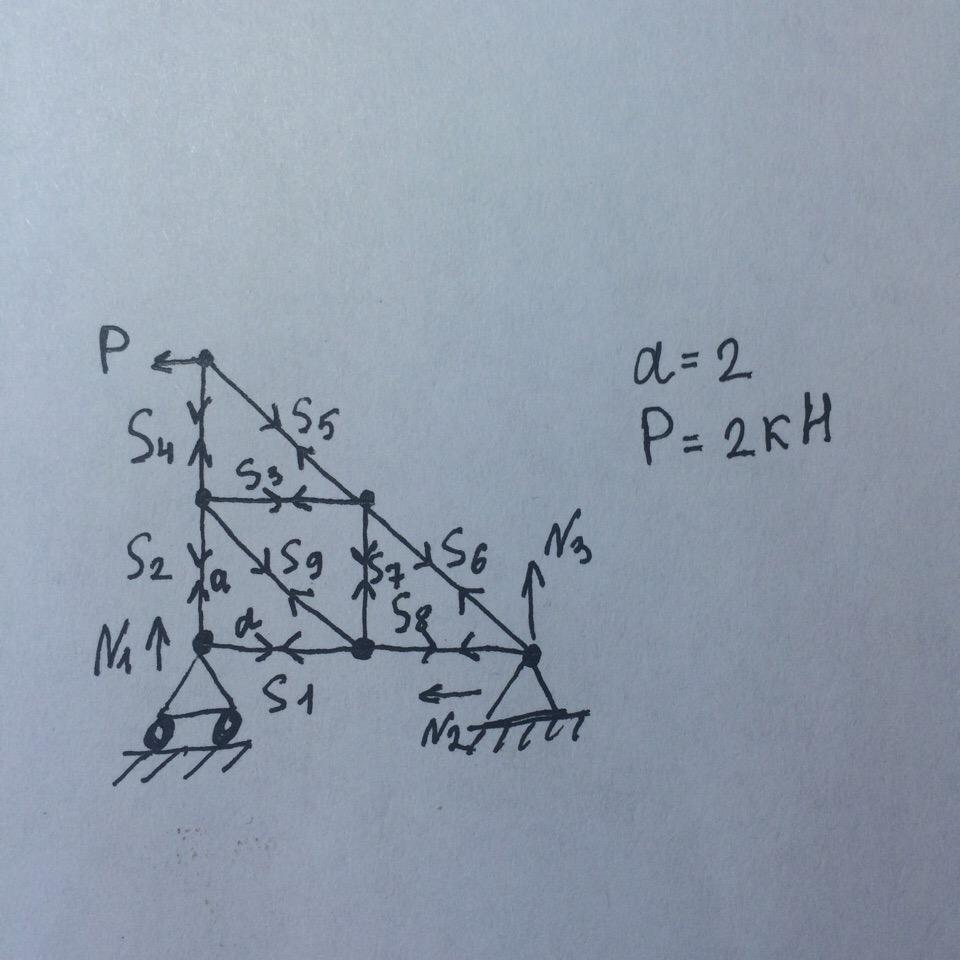 P
a = 2
P = 2кН
S4
S5
S3
S2
a
S9
S7
S6
N3
N1
a
S8
S1
N2